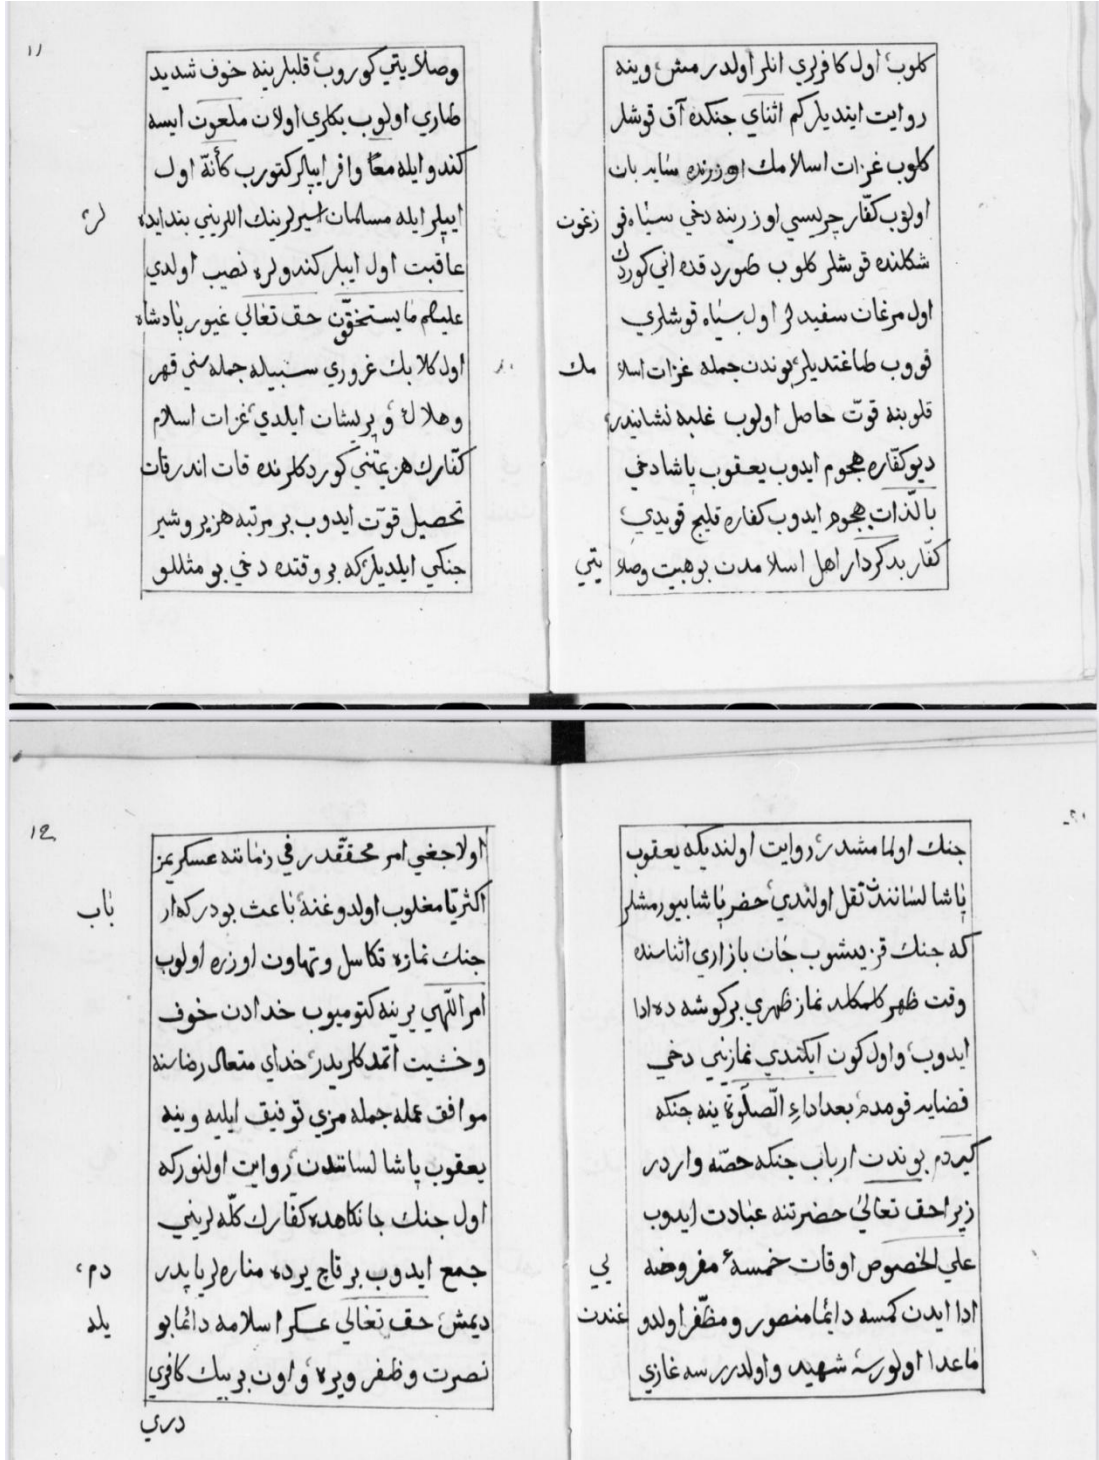 كلوب اول كافرلري انلر اولدرمش وينه
روايت ايتديلركم اثناي جنكده آق قوشلر
كلوب غزات اسلامك اوزرنده سايه بان
اولوب كفّار چريسي اوزرينه دخي سياه قو زغون
شكلنده قوشلر كلوب طوردقده اني كوردك
اول مرغان سفيدلر اول سياه قوشلري
قووب طاغتديلر بوندن جمله غزات اسلا مك
قلوبنه قوّت حاصل اولوب غلبه نشانيدر
ديو كفّاره هجوم ايدوب يعقوب پاشا دخي
بالّذات هجوم ايدوب كفاره قليج قويدي
كفّار بدكردار اهل اسلامدن بو هيبت وصلا يتي
١١
وصلايتي كوروب قلبلرينه خوف شديد
طاري اولوب بكلري اولان ملعون ايسه
كندو ايله معًا وافر ايپلر كتورب كأنّه اول
ايپلر ايله مسلمان اسيرلرينك اللريني بند ايده لر
عاقبت اول ايپلر كندولره نصيب اولدي
عليهم مايستحقّون حق تعالي غيور پادشاه
اول كلابك غروري سببيله جمله سني قهر
وهلاك و پريشان ايلدي غزات اسلام
كفّارك هزيمتني كوردكلرنده قات اندر قات
تحصيل قوّت ايدوب بر مرتبه هزبر وشير
جنكي ايلديلركه بر وقتده دخي بو مثللو
جنك اولمامشدر روايت اولنديكه يعقوب
پاشا لساننذن نقل اولندي حضر پاشا بيورمشلر
كه جنك قزيشوب جان بازاري اثناسنده
وقت ظهر كلمكله نماز ظهري بر كوشه ده ادا
ايدوب واول كون ايكندي نمازيني دخي
قضايه قومدم بعد اداء الصّلوة ينه جنكه
كيردم بوندن ارباب جنكه حصّه واردر
زيرا حق تعالي حضرتنه عبادت ايدوب
علي الخصوص اوقات خمسهٔ مفروضه يي
ادا ايدن كمسه دائما منصور ومظّفر اولدو غندن
ماعدا اولورسه شهيد واولدررسه غازي
١٢
اولاجغي امر محقّقدر في زماننه عسكريمز
اكثريا مغلوب اولدوغنه باعث بودركه ار باب
جنك نمازه تكاسل وتهاون اوزره اولوب
امر اللّهي يرينه كتورميوب خدادن خوف
وخشيت اتمدكلريدر خداي متعال رضاسنه
موافق عمله جمله مزي توفيق ايليه وينه
يعقوب پاشا لسانندن روايت اولنوركه
اول جنك جانكاهده كفّارك كلّه لريني
جمع ايدوب بر قاچ يرده مناره لر ياپدر دم
ديمش حق تعالي عسكر اسلامه دائما بو يله
نصرت وظفر ويره و اون بر بيك كافري
دري